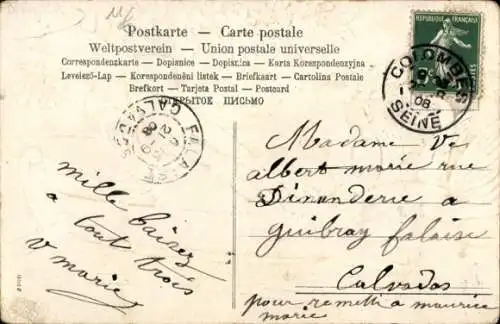 Postkarte – Carte postale
Weltpostverein – Union postale universelle
Correspondenzkarte – Dopisnice – Dopisnica – Karta Korespondenzyjna
Levelező-Lap – Korespondenční lístek – Briefkaart – Cartolina Postale
Brefkort – Tarjeta Postal – Postcard
ОТКРЫТОЕ ПИСЬМО
REPUBLIQUE FRANÇAISE
COLOMBES
08
SEINE
FALAISE
CALVADOS
08
mille baisez
a tout trois
v marie
Madame Ve
albert marie rue
Dinanderie a
guibray falaise
Calvados
pour remettr a maurice
marie